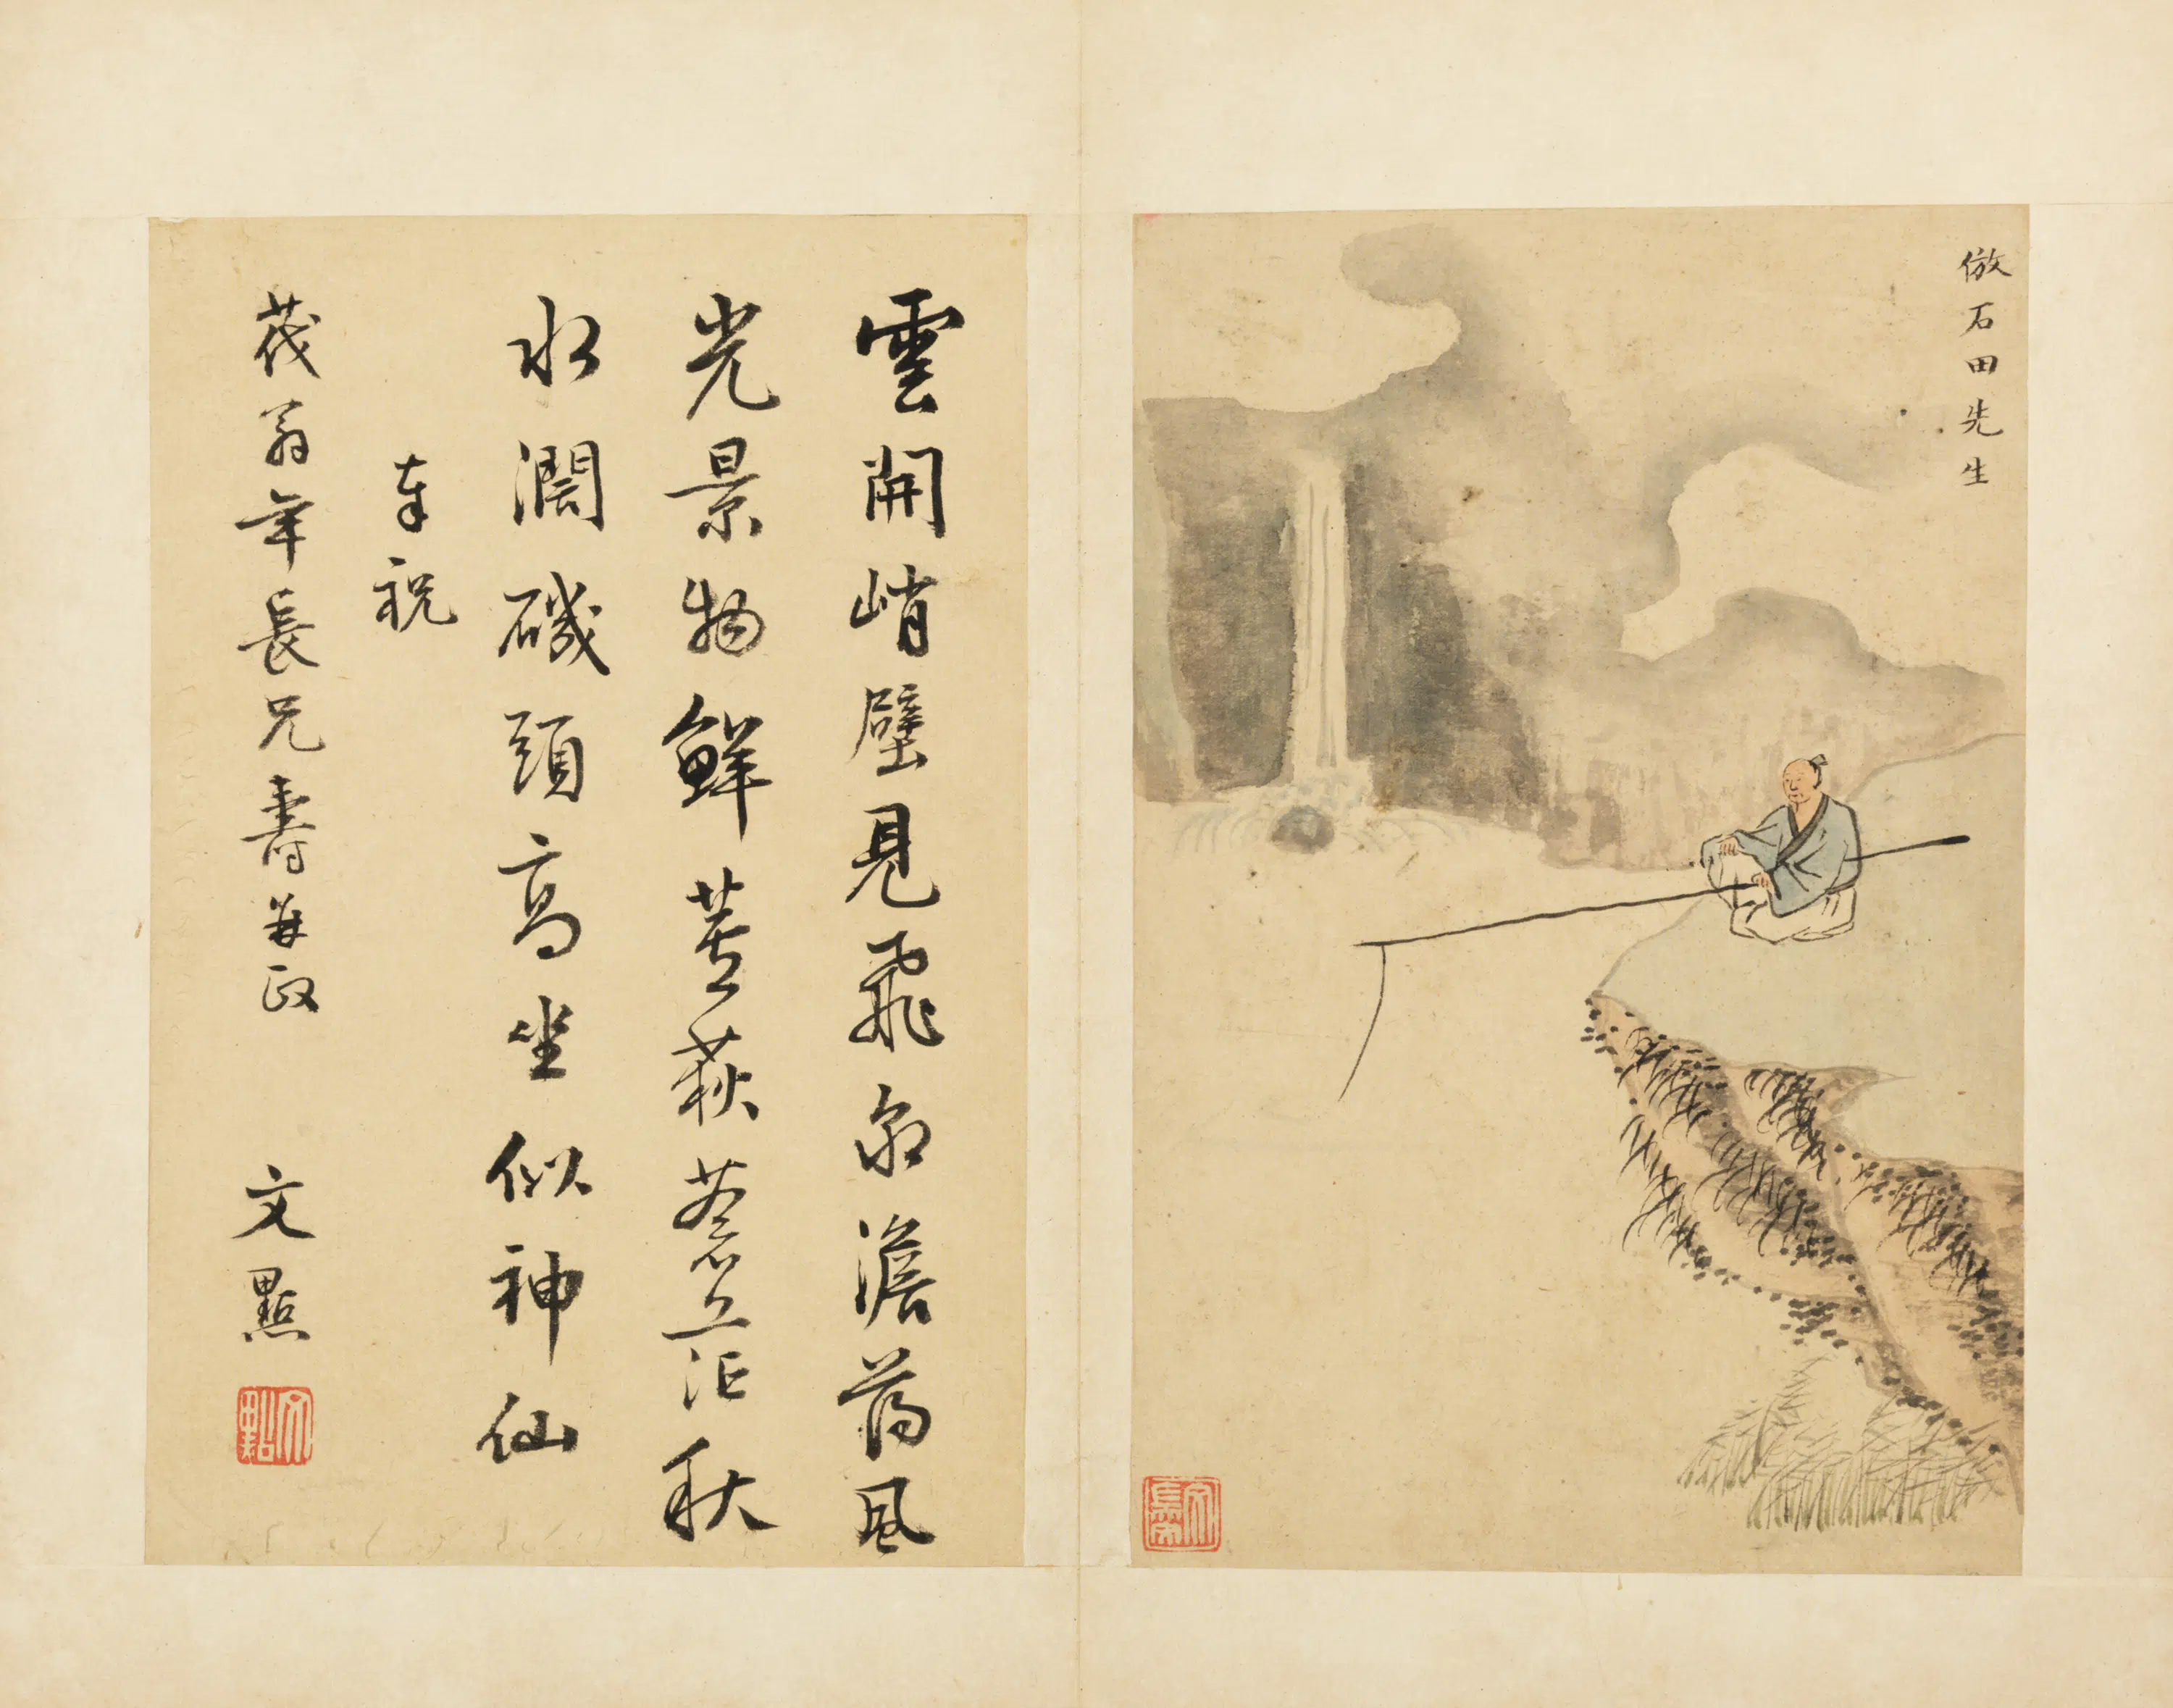 倣石田先生
雲開峭壁見飛泉澹蕩風
光景物鮮蘆荻蒼茫秋
水濶磯頭高坐似神仙
奉祝
茂翁年長兄壽並政
文點
文點